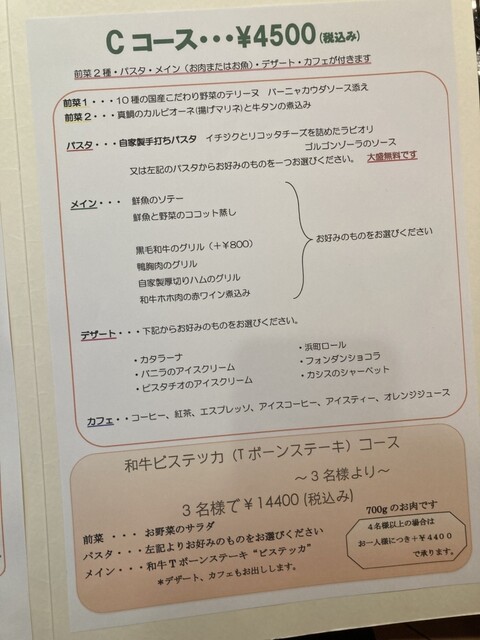 Cコース・・・¥4500(税込み)
前菜2種・パスタ・メイン（お肉またはお魚）・デザート・カフェが付きます
前菜1・・・10種の国産こだわり野菜のテリーヌ　バーニャカウダソース添え
前菜2・・・真鯛のカルピオーネ(揚げマリネ)と牛タンの煮込み
パスタ・・・自家製手打ちパスタ　イチジクとリコッタチーズを詰めたラビオリ
ゴルゴンゾーラのソース
又は左記のパスタからお好みのものを一つお選びください。　大盛無料です
メイン・・・　鮮魚のソテー
鮮魚と野菜のココット蒸し
黒毛和牛のグリル（＋¥800）
鴨胸肉のグリル
自家製厚切りハムのグリル
和牛ホホ肉の赤ワイン煮込み
お好みのものをお選びください
デザート・・・下記からお好みのものをお選びください。
・カタラーナ　・浜町ロール
・バニラのアイスクリーム　・フォンダンショコラ
・ピスタチオのアイスクリーム　・カシスのシャーベット
カフェ・・コーヒー、紅茶、エスプレッソ、アイスコーヒー、アイスティー、オレンジジュース
和牛ビステッカ（Tボーンステーキ）コース
～3名様より～
3名様で¥14400(税込み)
700gのお肉です
前菜・・・　お野菜のサラダ
パスタ・・・左記よりお好みのものをお選びください
メイン・・・和牛Tボーンステーキ“ビステッカ”
＊デザート、カフェもお出しします。
4名様以上の場合は
お一人様につき＋¥4400
で承ります。